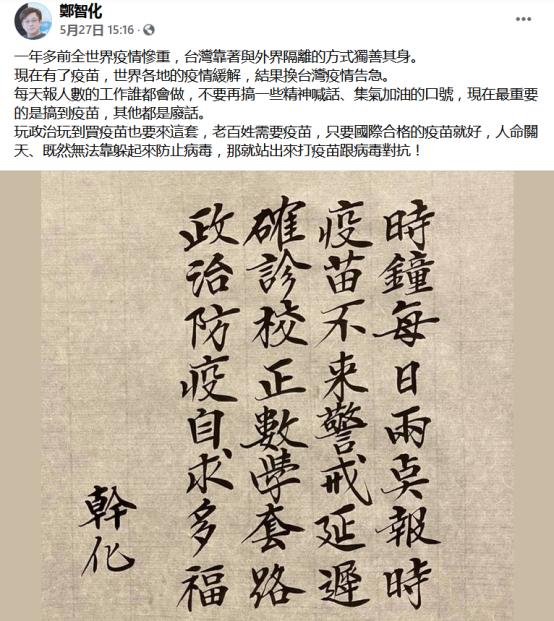 鄭智化
5月27日 15:16
一年多前全世界疫情慘重，台灣靠著與外界隔離的方式獨善其身。
現在有了疫苗，世界各地的疫情緩解，結果換台灣疫情告急。
每天報人數的工作誰都會做，不要再搞一些精神喊話、集氣加油的口號，現在最重要
的是搞到疫苗，其他都是廢話。
玩政治玩到買疫苗也要來這套，老百姓需要疫苗，只要國際合格的疫苗就好，人命關
天、既然無法靠躲起來防止病毒，那就站出來打疫苗跟病毒對抗！
時鐘每日兩奌報時
疫苗不来警戒延遲
確診校正數學套路
政治防疫自求多福
幹化